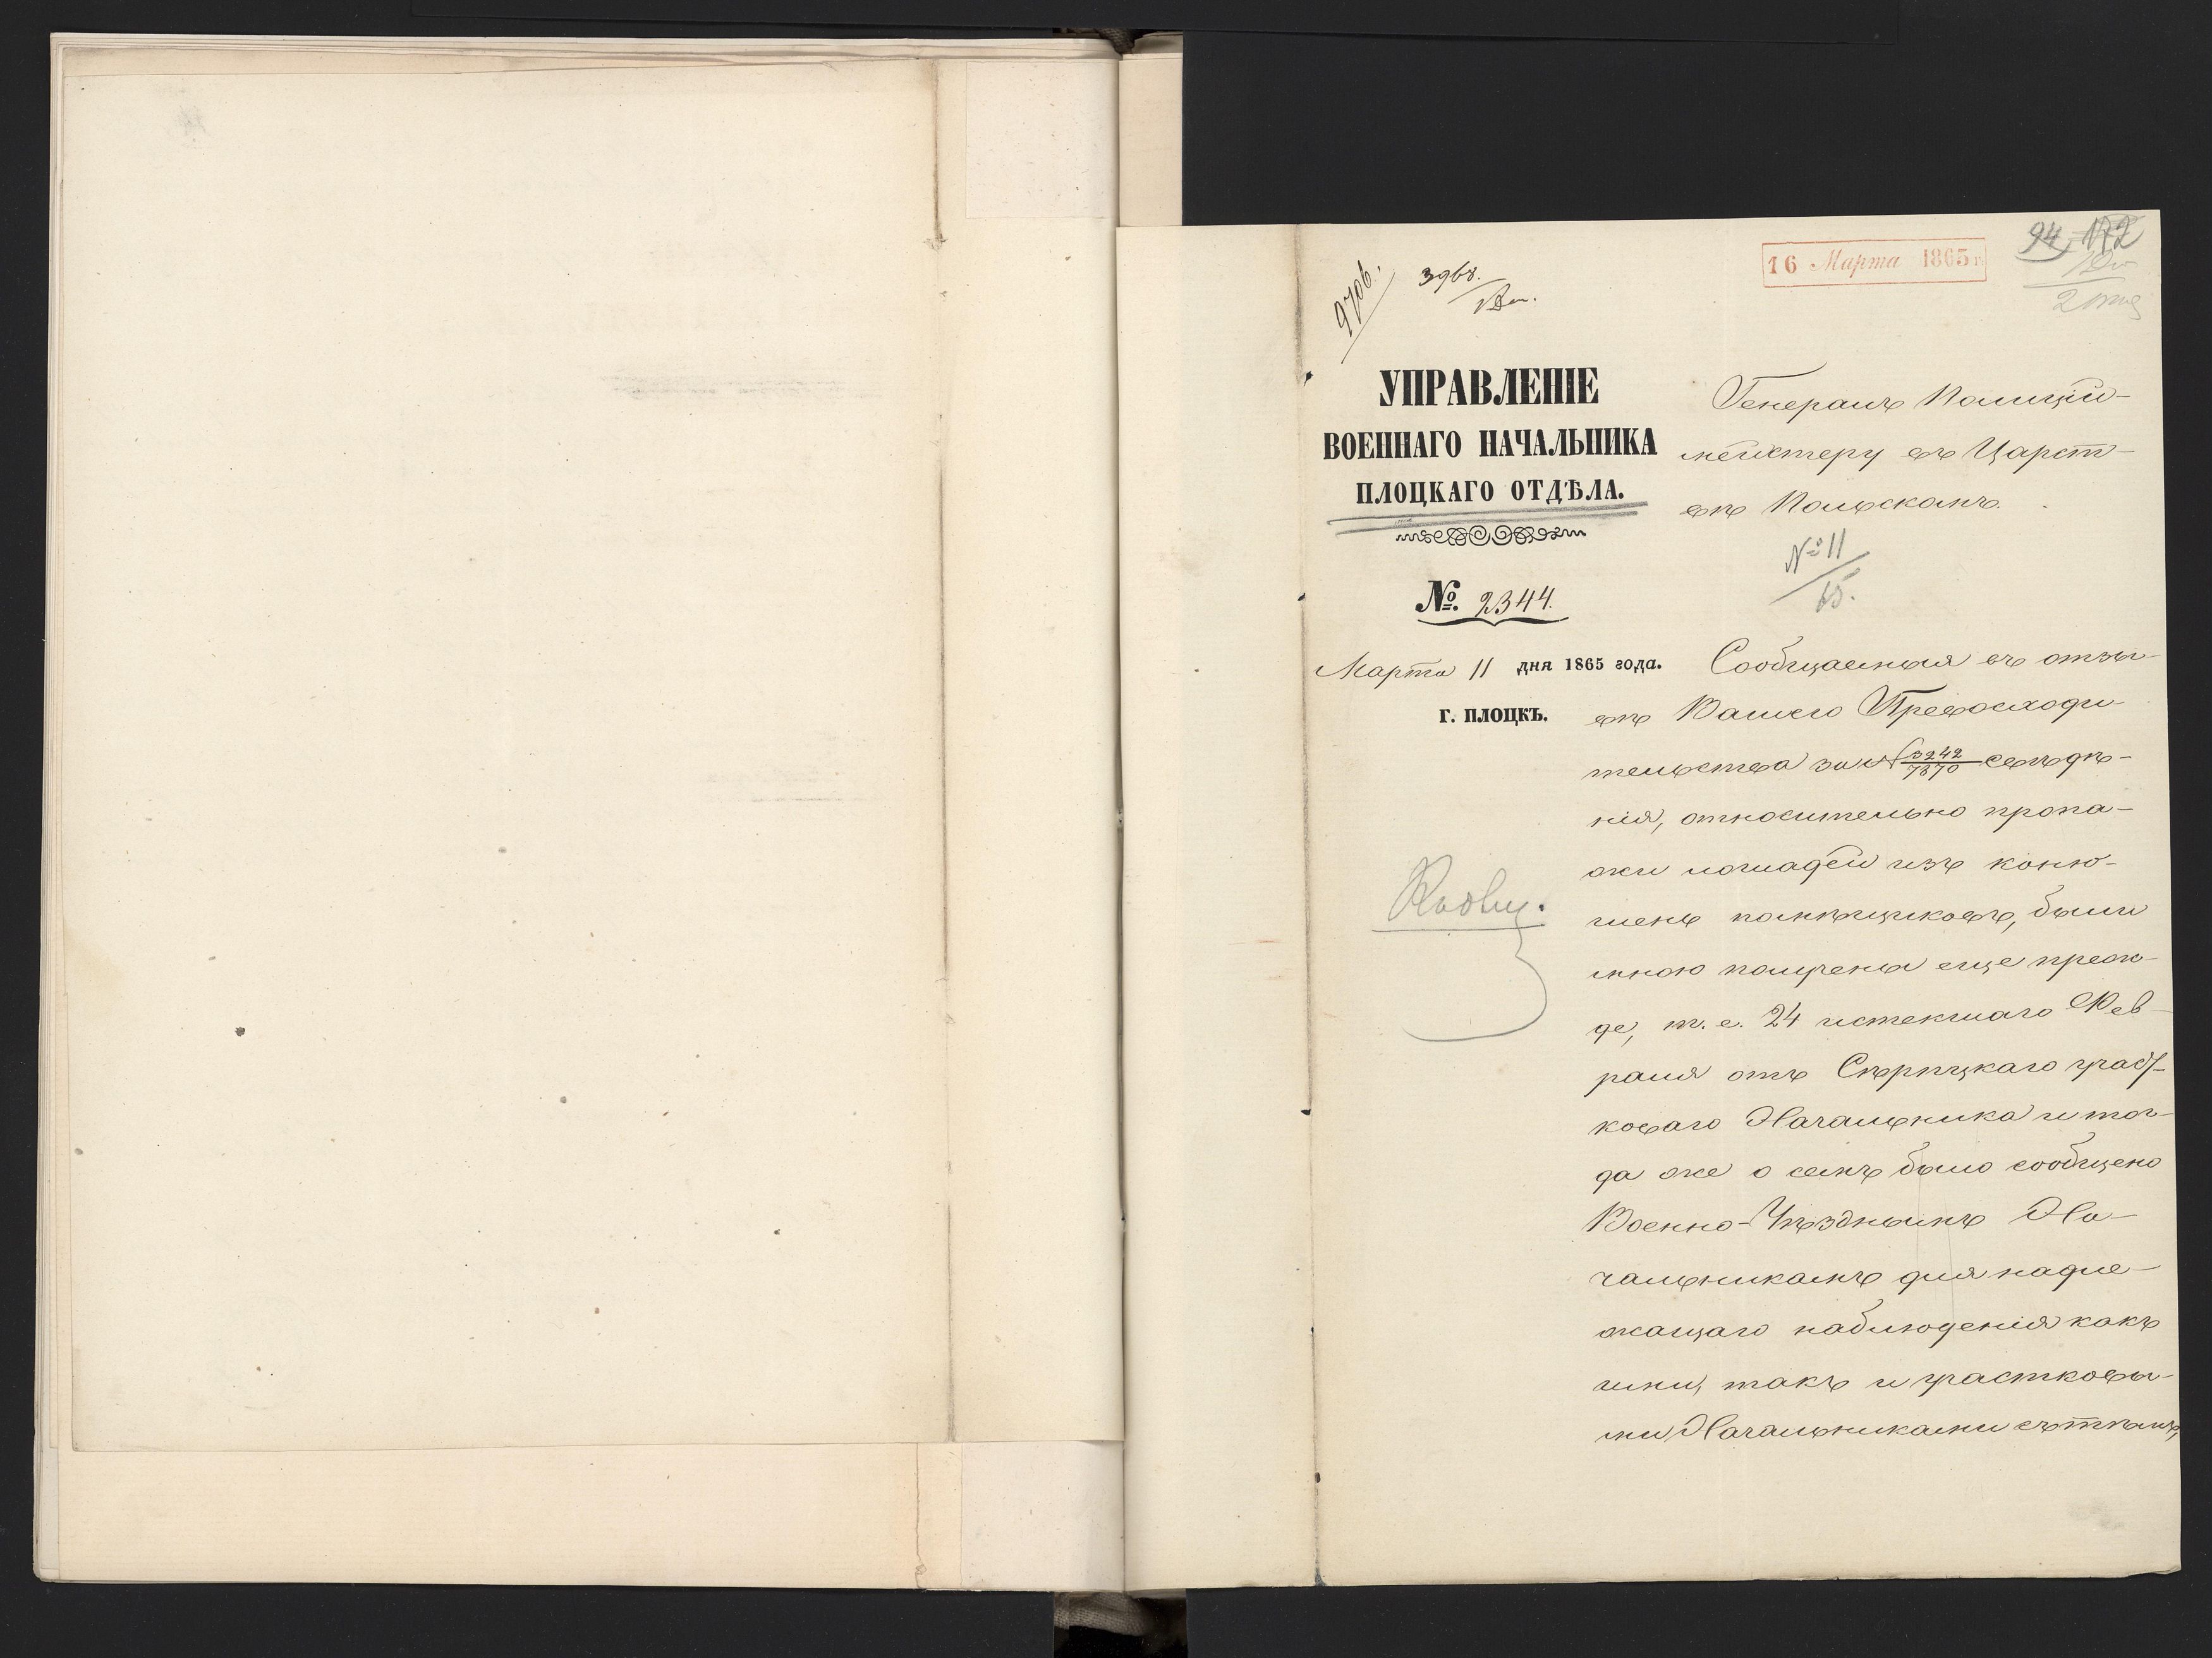 94 172
16 Марта 1865 г.
9706.
3968.
УПРАВЛЕНІЕ
ВОЕННАГО НАЧАЛЬНИКА
ПЛОЦКАГО ОТДѢЛА.
№. 2344.
Марта 11 дня 1865 года.
г. ПЛОЦКЪ.
Генералъ Полиций-
мейстеру въ Царст-
вѣ Польскомъ.
№ 11
65.
Сообщаемыя въ отзы-
вѣ Вашего Превосходи-
тельства за № 3242/7870 свѣдѣ-
нія, относительно пропа-
жи лошадей изъ коню-
шень помѣщиковъ, были
мною получены еще преж-
де, т. е. 24 истекшаго Фев-
раля отъ Сѣрпцкаго участ-
коваго Начальника и тог-
да же о семъ было сообщено
Военно-Уѣзднымъ На-
чальникамъ для надле-
жащаго наблюденія какъ
ими, такъ и участковы-
ми Начальниками съ тѣмъ,